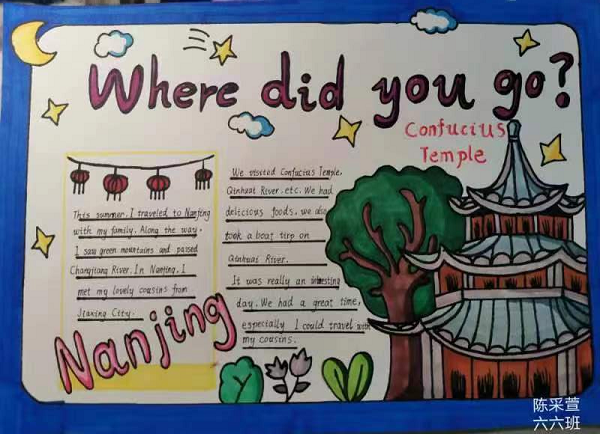 Where did you go?
Confucius
Temple
This summer, I traveled to Nanjing
with my family. Along the way,
I saw green mountains and passed
Changjiang River. In Nanjing, I
met my lovely cousins from
Jiaxing City.
Nanjing
We visited Confucius Temple,
Qinhuai River. etc. We had
delicious foods, we also
took a boat tirp on
Qinhuai River.
It was really an interesting
day. We had a great time,
especially I could travel with
my cousins.
陈采萱
六六班